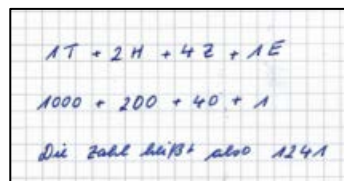 1T + 2H + 4Z + 1E
1000 + 200 + 40 + 1
Die Zahl heißt also 1241